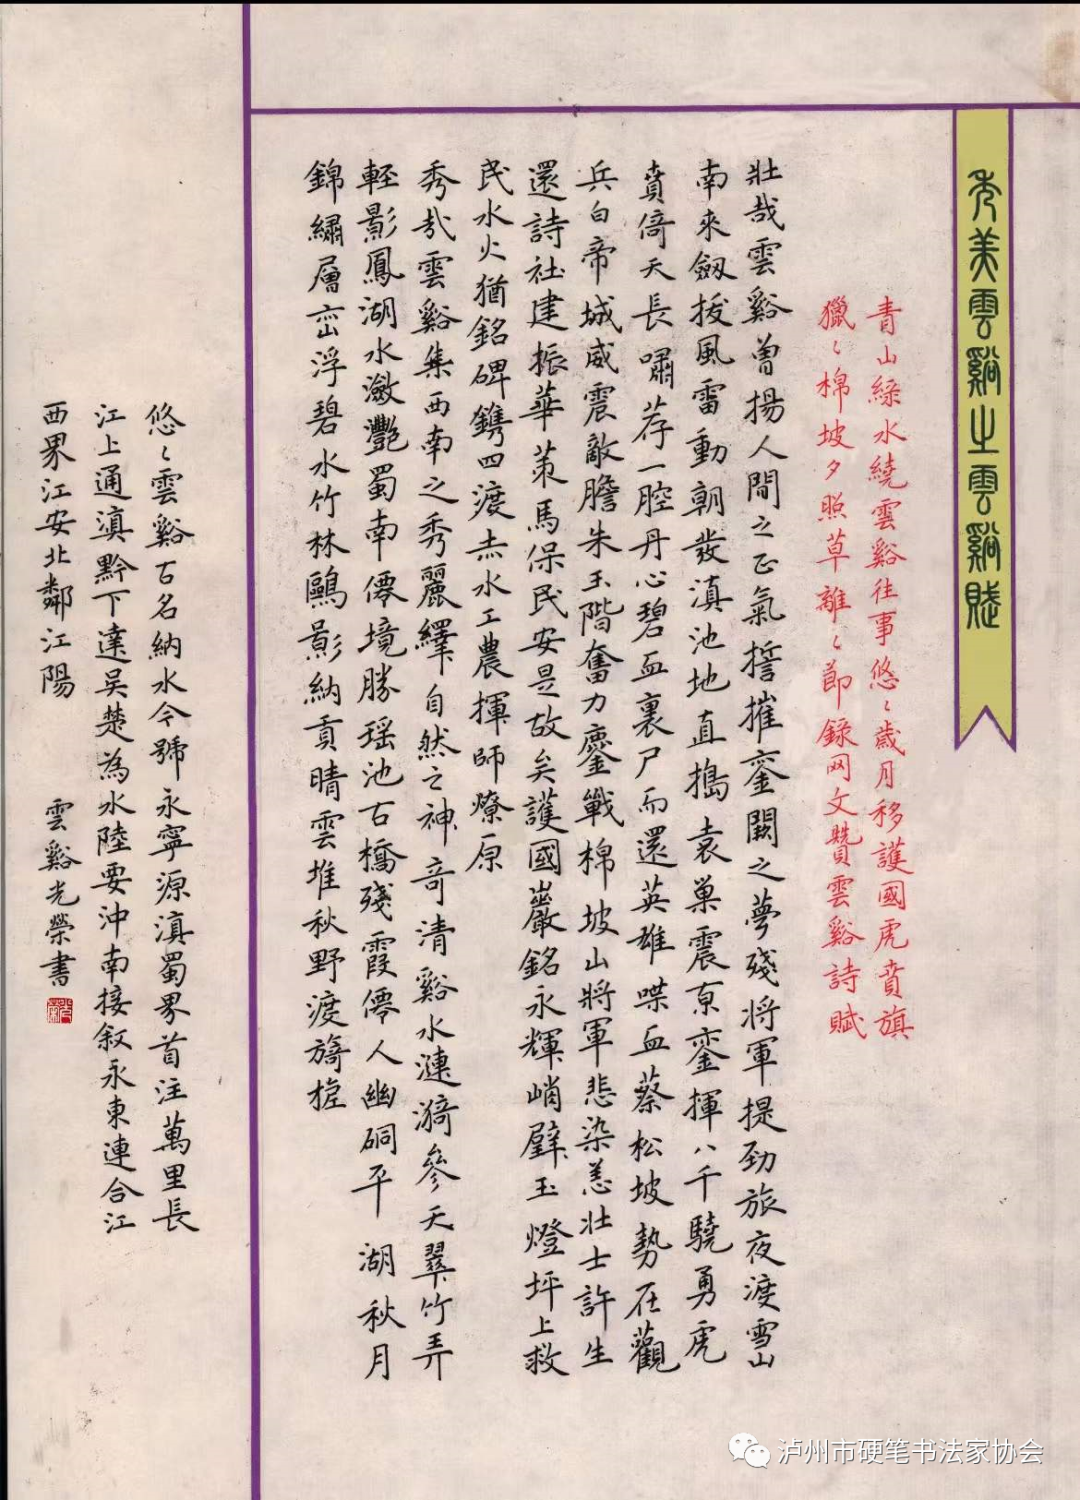 秀美雲谿之雲谿賦
青山綠水繞雲谿往事悠〻歲月移護國虎賁旗
獵〻棉坡夕照草離〻節錄网文贊雲谿詩賦
壯哉雲谿曾揚人間之正氣誓摧鑾闕之夢殘將軍提勁旅夜渡雪山
南來劔拔風雷動朝發滇池地直搗袁巢震京鑾揮八千驍勇虎
賁倚天長嘯荐一腔丹心碧血裹尸而還英雄喋血蔡松坡勢在觀
兵白帝城威震敵膽朱玉階奮力鏖戰棉坡山將軍悲染恙壯士許生
還詩社建振華策馬保民安是故矣護國巖銘永輝峭壁玉燈坪上救
民水火猶銘碑鐫四渡赤水工農揮師燎原
秀哉雲谿集西南之秀麗繹自然之神奇清谿水漣漪參天翠竹弄
輕影鳳湖水瀲灩蜀南僊境勝瑶池古橋殘霞僊人幽硐平 湖秋月
錦繡層巒浮碧水竹林鷗影納貢晴雲堆秋野渡旖旎
悠〻雲谿古名納水今號永寧源滇蜀界首注萬里長
江上通滇黔下達吴楚為水陸要沖南接叙永東連合江
西界江安北鄰江陽 雲谿光榮書
泸州市硬笔书法家协会